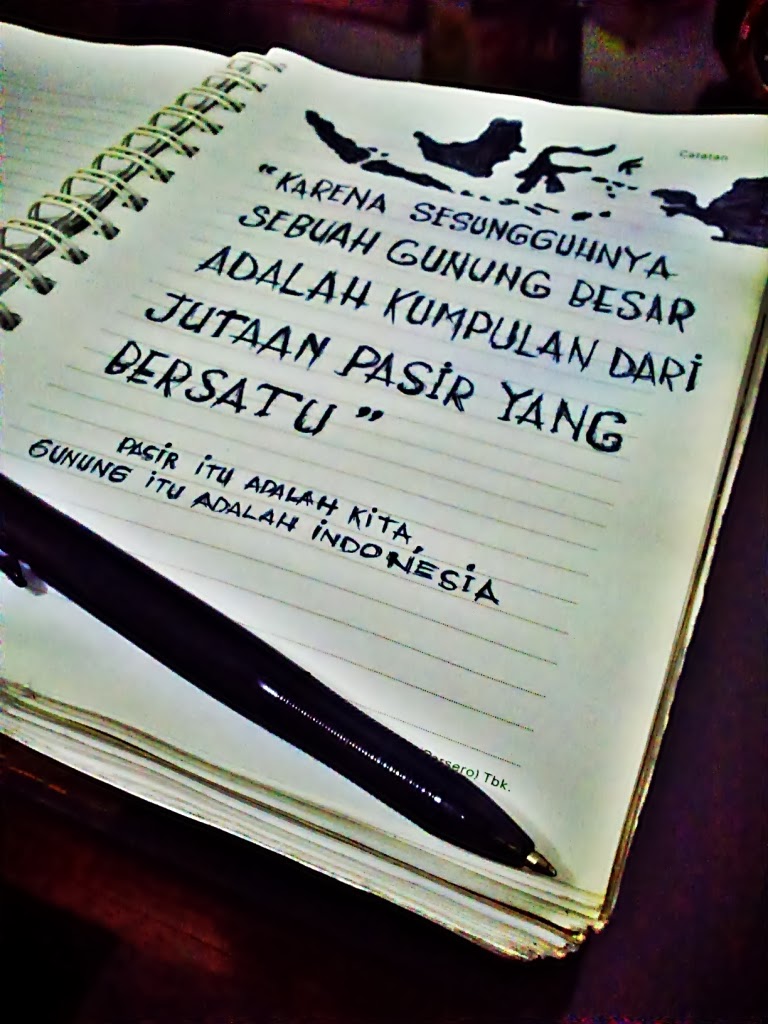 Catatan
"KARENA SESUNGGUHNYA
SEBUAH GUNUNG BESAR
ADALAH KUMPULAN DARI
JUTAAN PASIR YANG
BERSATU"
PASIR ITU ADALAH KITA,
GUNUNG ITU ADALAH INDONESIA
Tbk.